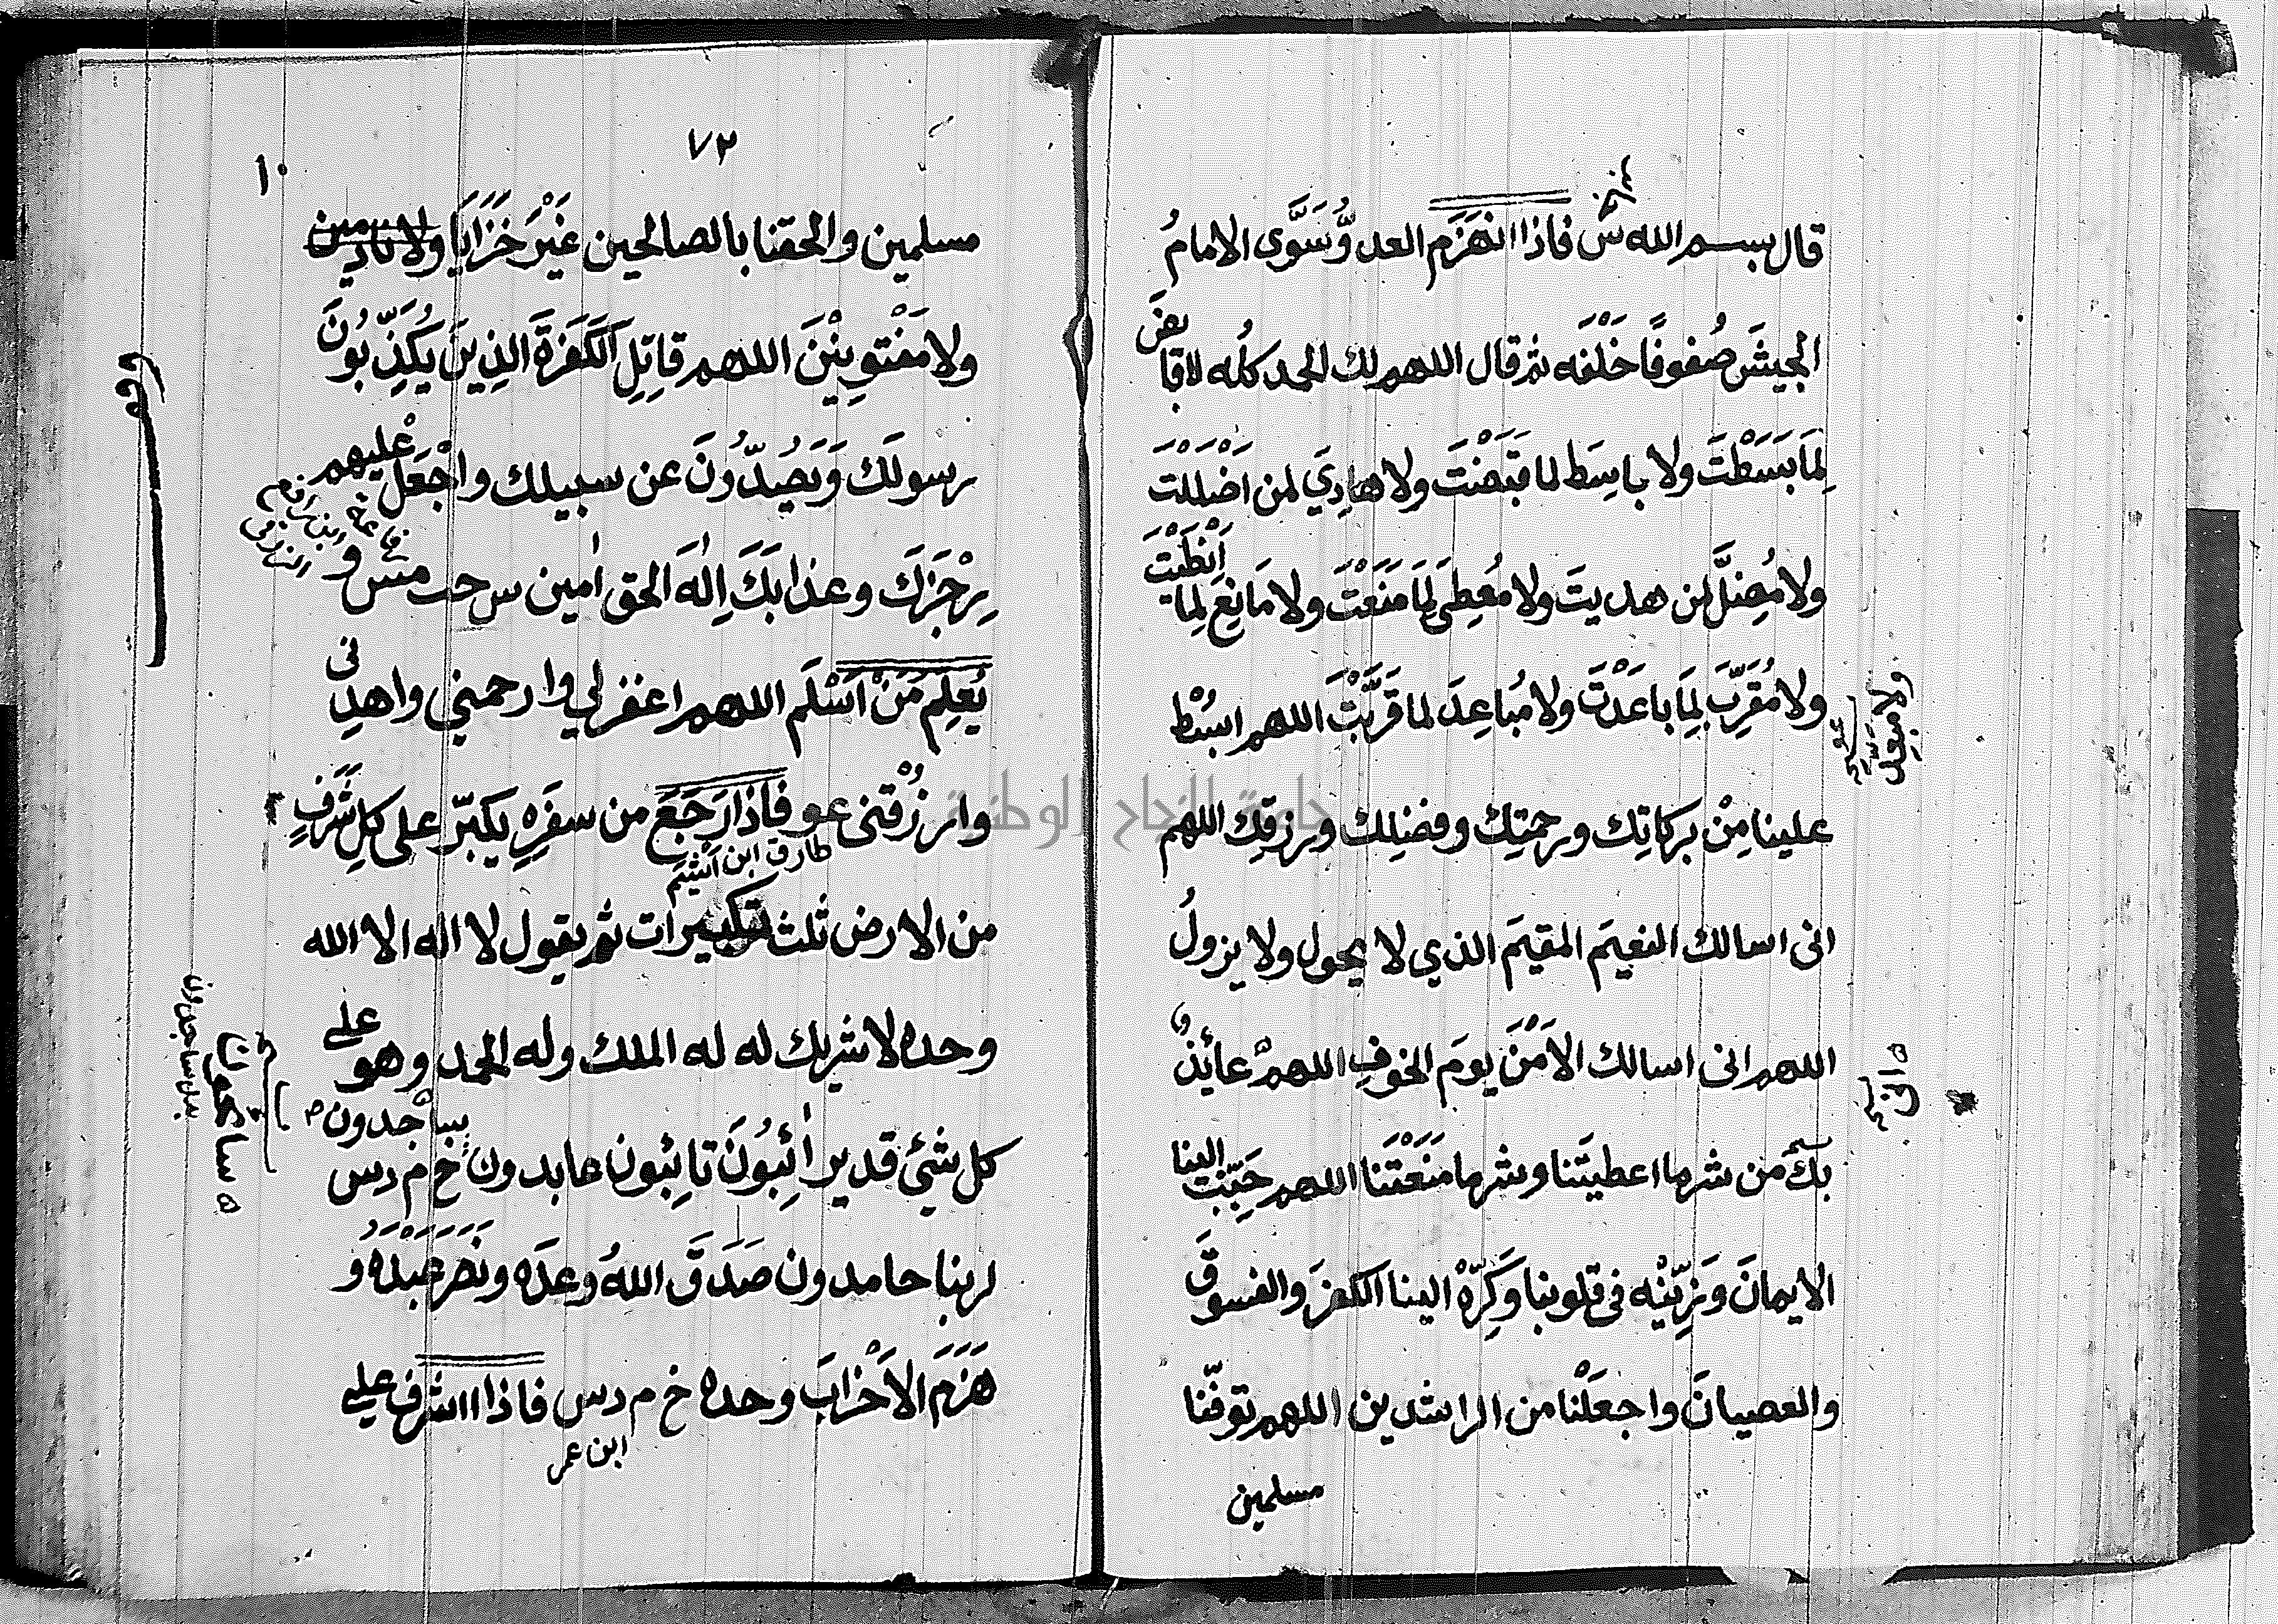 قال بسم الله س فاذا انهَزَم العدوُّ سَوَّى الامامُ
الجيشَ صُفوفًا خَلْفَه ثم قال اللهم لك الحمد كلُّه لا قابضَ
لِمَا بَسَطْتَ ولا باسِطَ لما قبَضْتَ ولا هادِيَ لمن اَضْلَلْتَ
ولا مُضِلَّ لمن هديتَ ولا مُعطِىَ لِمَا مَنَعْتَ ولا مَانِعَ لِمَا اَنْطَيْتَ
ولا مُقَرِّبَ لِمَا باعَدْتَ ولا مُباعِدَ لما قَرَّبْتَ اللهم ابسُطْ
ولا مبعد
علينا مِنْ بركاتِك ورحمتِك وفضلِك ورزقِك اللهم
انى اسالك النعيمَ المقيمَ الذي لا يحول ولا يزولُ
اللهم انى اسالك الاَمْنَ يومَ الخوفِ اللهمّ عائِذٌ
انى
بك من شر ما اعطيتَنا وشر ما مَنَعْتَنا اللهم حَبِّبْ الينا
الايمانَ وَزَيِّنْه فى قلوبنا وَكَرِّهْ الينا الكفرَ والفسوقَ
والعصيانَ واجعَلْنا من الراشدين اللهم توفَّنا
مسلمين
٧٢
١٠
مسلمين والحقنا بالصالحين غَيْرَ خَزَايَا ولا نادمين
ولا مَفْتونِيْنَ اللهم قاتِلِ الكَفَرَةَ الذِينَ يُكَذِّبُونَ
رسولَك وَيَصُدُّونَ عن سبيلك واجْعَلْ عليهم
رِجْزَكَ وعذابَكَ اِلٰهَ الحق اٰمين س حب مس و
رفاعة ابن رافع
يُعَلِّمُ مَنْ اَسْلَمَ اللهم اغفر لي وارحمني واهدِنى
وارزُقْنى عو فاذا رَجَعَ من سفَرِه يكبّر على كلِّ شَرَفٍ
طارق ابن اشيم
من الارض ثلث تكبيرات ثم يقول لا اله الا الله
وحده لا شريك له له الملك وله الحمد وهو على
كل شئ قدير اٰئِبُونَ تائِبُون عابدون ساجدون خ م د س
بدل ساجدون
لربنا حامدون صَدَقَ اللهُ وعدَه ونَصَرَ عَبْدَهُ و
هَزَمَ الاَحْزابَ وحده خ م د س فاذا اشرف على
ابن عمر